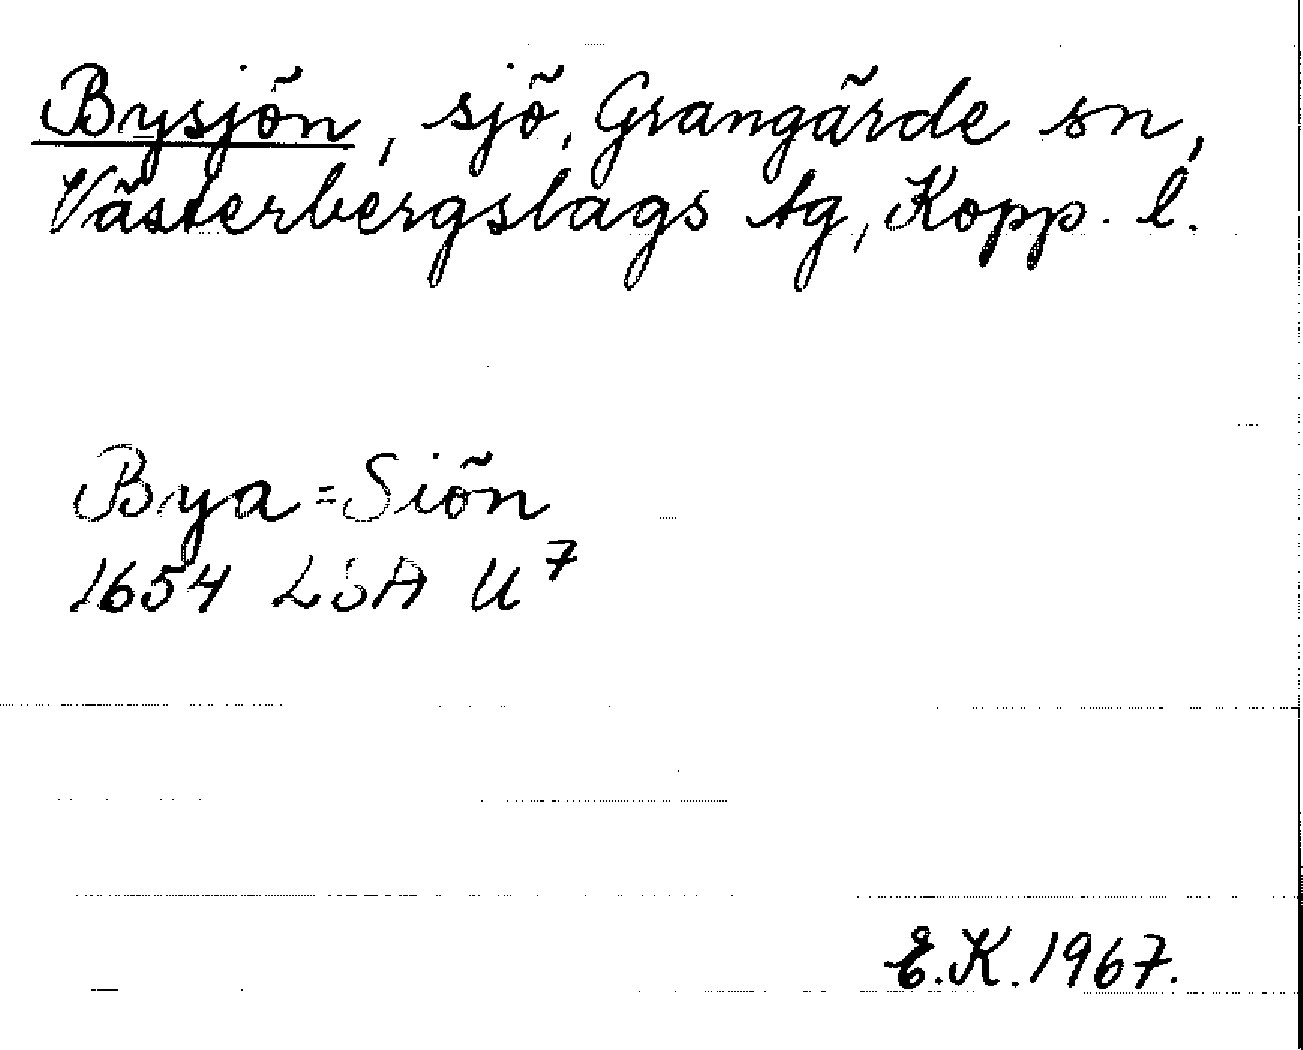 Bysjön, sjö, Grangärde sn,
Västerbergslags tg, Kopp. l.
Bya=Siön
1654 LSA U⁷
E.K. 1967.